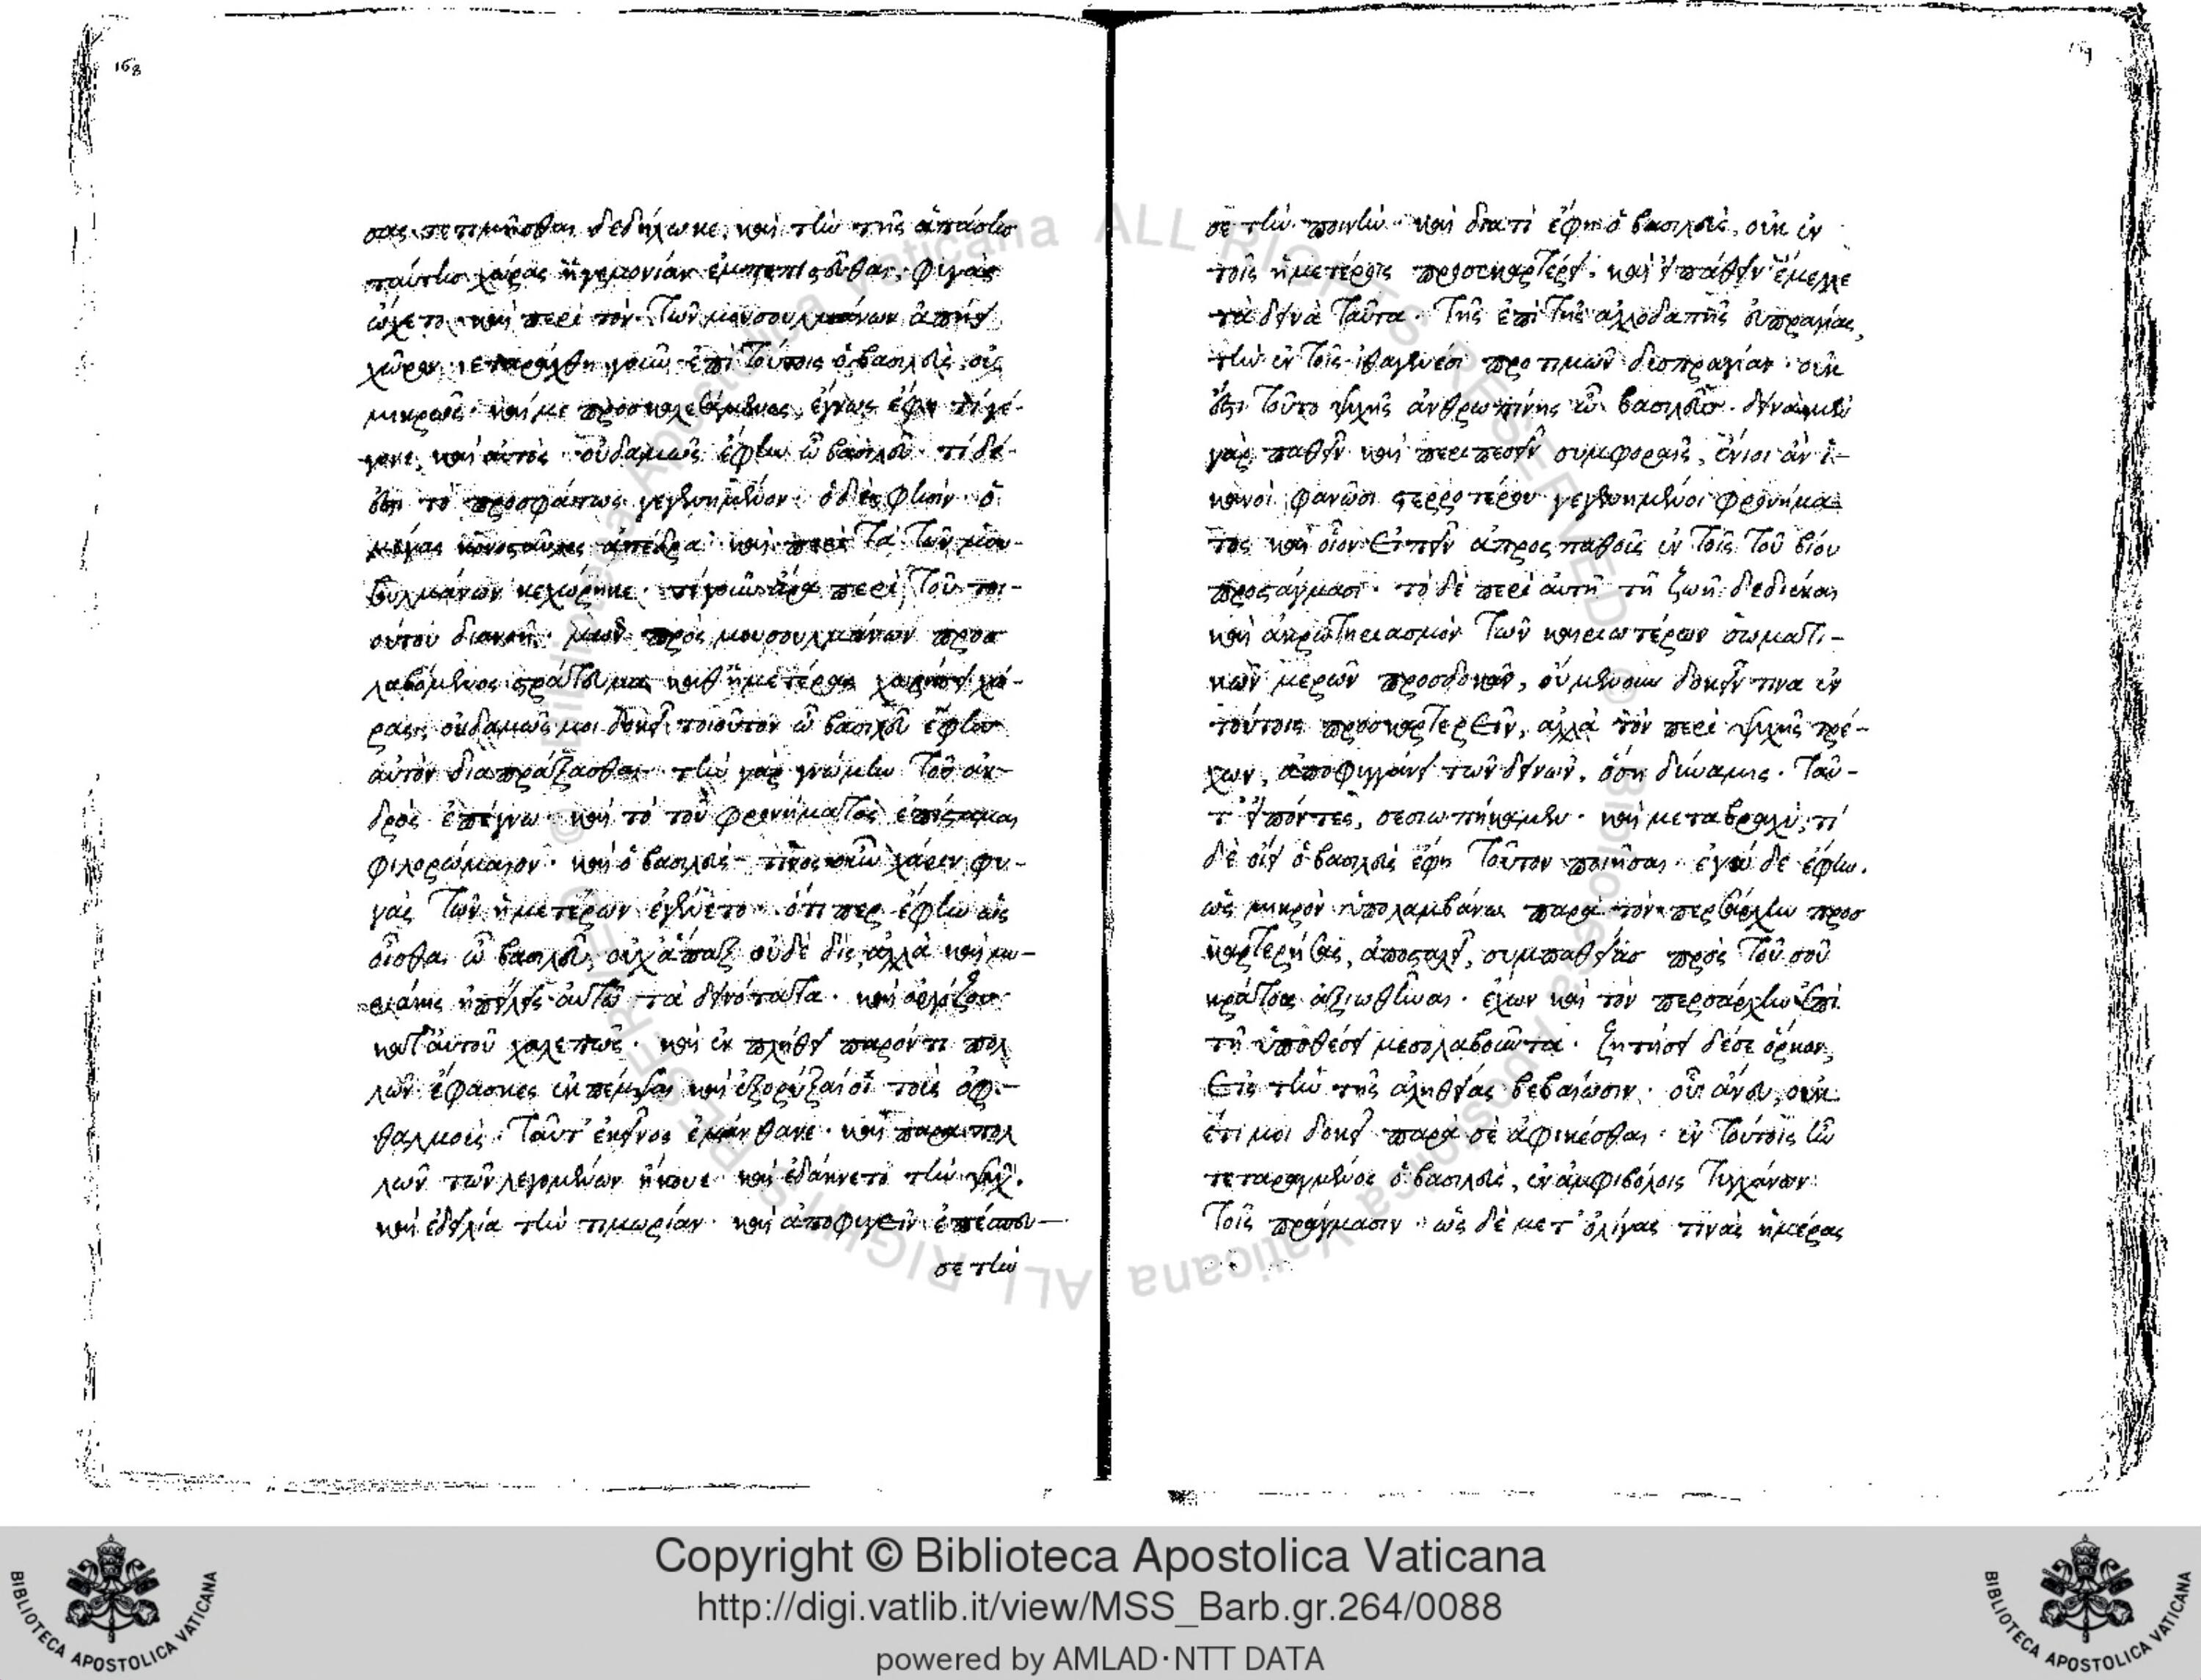 168
σας τετιμῆσθαι δεδήλωκε, καὶ τὴν τῆς ἁπάσης
ταύτης χώρας ἡγεμονίαν ἐμπεπιστεῦσθαι, φυγὰς
ᾤχετο καὶ περὶ τὸν τῶν μουσουλμάνων ἀπῄει
χῶρον, ἐταράχθη γοῦν ἐπὶ τούτοις ὁ βασιλεὺς οὐ
μικρῶς· καί με προσκαλεσάμενος, ἔγνως ἔφη τί γέ-
γονε, καὶ αὐτὸς οὐδαμῶς ἔφην ὦ βασιλεῦ· τί δέ
ἐστι τὸ προσφάτως γεγενημένον· ὁ δὲ φησὶν ὁ
μέγας κονοσταῦλος ἀπέδρα· καὶ περὶ τὰ τῶν μου-
σουλμάνων κεχώρηκε· τί γοῦν ἄρα περὶ τοῦ τοι-
ούτου διανοῇ· πρὸς μουσουλμάνων προσ
λαβόμενος στράτευμα καθ' ἡμετέρας χωρήσει χώ-
ρας, οὐδαμῶς μοι δοκεῖ τοιοῦτον ὦ βασιλεῦ ἔφην
αὐτὸν διαπράξασθαι· τὴν γὰρ γνώμην τοῦ ἀν-
δρὸς ἐπέγνων καὶ τὸ τοῦ φρονήματος ἐπίσταμαι
φιλορώμαιον· καὶ ὁ βασιλεὺς τίνος οὖν χάριν φυ-
γὰς τῶν ἡμετέρων ἐγένετο· ὅτι περ ἔφην ὡς
οἶσθα ὦ βασιλεῦ, οὐχ ἅπαξ οὐδὲ δὶς, ἀλλὰ καὶ πο-
λλάκις ἠπείλεις αὐτῷ τὰ δεινότατα· καὶ ὠργίζου
κατ' αὐτοῦ χαλεπῶς· καὶ ἐν πλήθει παρόντι πολ
λῶν ἔφασκες ἐκπέμψαι καὶ ἐξορύξαί οἱ τοὺς ὀφ-
θαλμούς· ταῦτ' ἐκεῖνος ἐμάνθανε· καὶ παρὰ πολ
λῶν τῶν λεγομένων ἤκουε καὶ ἐδάκνετο τὴν ψυχ.
καὶ ἐδειλία τὴν τιμωρίαν· καὶ ἀποφυγεῖν ἐπέσπευ-
σε τὴν
σε τὴν ποινὴν· καὶ διατί ἔφη ὁ βασιλεὺς, οὐκ ἐν
τοῖς ἡμετέροις προσεκαρτέρει· καὶ εἰ παθεῖν ἔμελλε
τὰ δεινὰ ταῦτα· τῆς ἐπὶ τῆς ἀλλοδαπῆς εὐπραγίας,
τὴν ἐν τοῖς ἰθαγενέσι προτιμῶν δυσπραγίαν· οὐκ
ἔστι τοῦτο ψυχῆς ἀνθρωπίνης ὦ βασιλεῦ· δεινὰ μὲν
γὰρ παθεῖν καὶ περιπεσεῖν συμφοραῖς, ἔνιοι ἂν ἱ-
κανοὶ φανῶσι στερροτέρου γεγενημένοι φρονήμα-
τος καὶ οἷον εἰπεῖν ἀπροσπαθοῦς ἐν τοῖς τοῦ βίου
προστάγμασι· τὸ δὲ περὶ αὐτῇ τῇ ζωῇ δεδιέναι
καὶ ἀκρωτηριασμὸν τῶν καιριωτέρων σωματι-
κῶν μερῶν προσδοκᾶν, οὐ μενοῦν δοκεῖν τινα ἐν
τούτοις προσκαρτερεῖν, ἀλλὰ τὸν περὶ ψυχῆς τρέ-
χων, ἀποφυγγάνει τῶν δεινῶν, ὅση δύναμις. ταῦ-
τ' εἰπόντες, σεσιωπήκαμεν· καὶ μεταβραχὺ, τί
δὲ οἴει ὁ βασιλεὺς ἔφη τοῦτον ποιῆσαι· ἐγὼ δὲ ἔφην.
ὡς μικρὸν ὑπολαμβάνω παρὰ τὸν περσάρχην προσ
καρτερήσας, ἀποσταλεῖ, συμπαθείας πρὸς τοῦ σοῦ
κράτους ἀξιωθῆναι. ἔχων καὶ τὸν περσάρχην ἐπὶ
τῇ ὑποθέσει μεσολαβοῦντα· ζητήσει δέ σε ὅρκον,
εἰς τὴν τῆς ἀληθείας βεβαίωσιν. οὗ ἄνευ, οὐκ
ἔτι μοι δοκεῖ παρὰ σὲ ἀφικέσθαι· ἐν τούτοις ἦν
τεταραγμένος ὁ βασιλεὺς, ἐν ἀμφιβόλοις τυγχάνων
τοῖς πράγμασιν· ὡς δὲ μετ' ὀλίγας τινὰς ἡμέρας
Copyright © Biblioteca Apostolica Vaticana
http://digi.vatlib.it/view/MSS_Barb.gr.264/0088
powered by AMLAD·NTT DATA
BIBLIOTECA APOSTOLICA VATICANA
BIBLIOTECA APOSTOLICA VATICANA